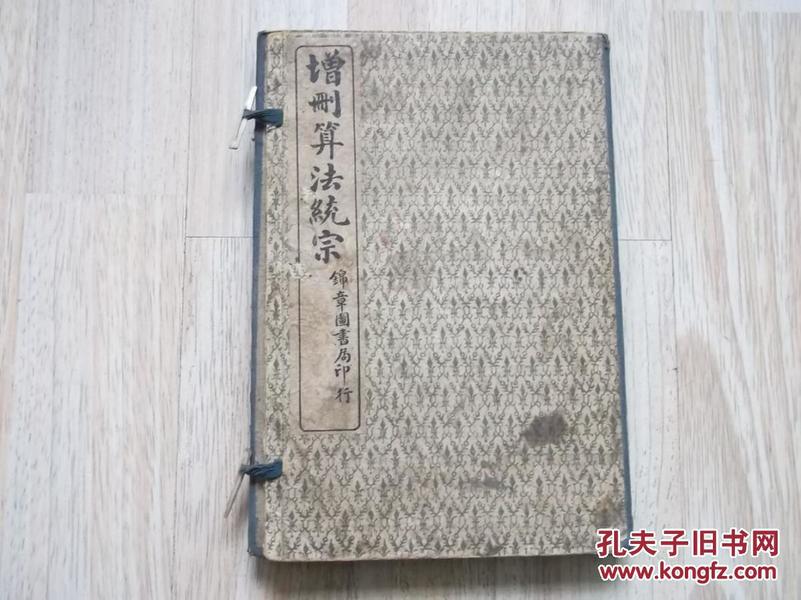 增刪算法統宗
錦章圖書局印行
孔夫子旧书网
www.kongfz.com